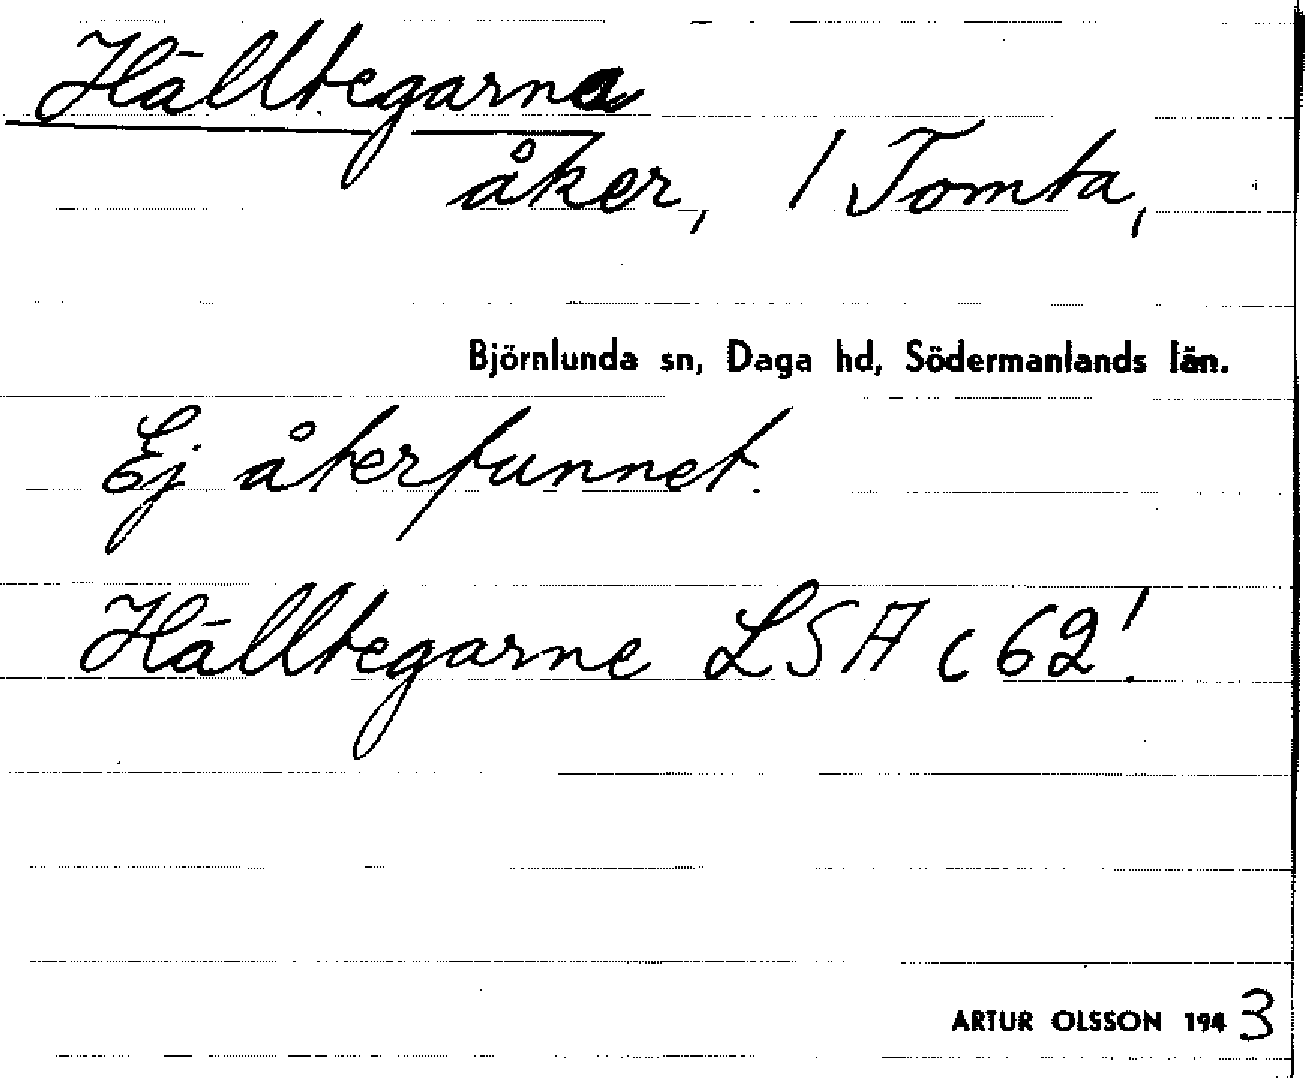 Hälltegarna
åker, / Tomta,
Björnlunda sn, Daga hd, Södermanlands län.
Ej återfunnet.
Hälltegarne LSA c 62!
ARTUR OLSSON 1943